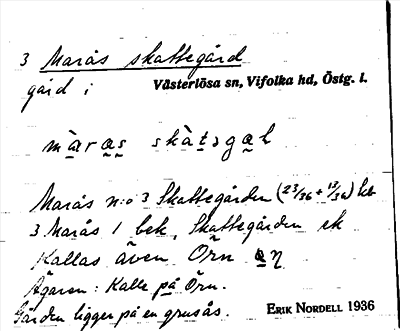 3 Marås skattegård
gård i Västerlösa sn, Vifolka hd, Östg. l.
màrạṣ skàṭəgạḷ
Marås n:o 3 Skattegården (23/36 + 13/36)
3 Marås 1 bek, Skattegården ek
Kallas även Örn
Ägaren: Kalle på Örn.
Gården ligger på en grusås.
ERIK NORDELL 1936